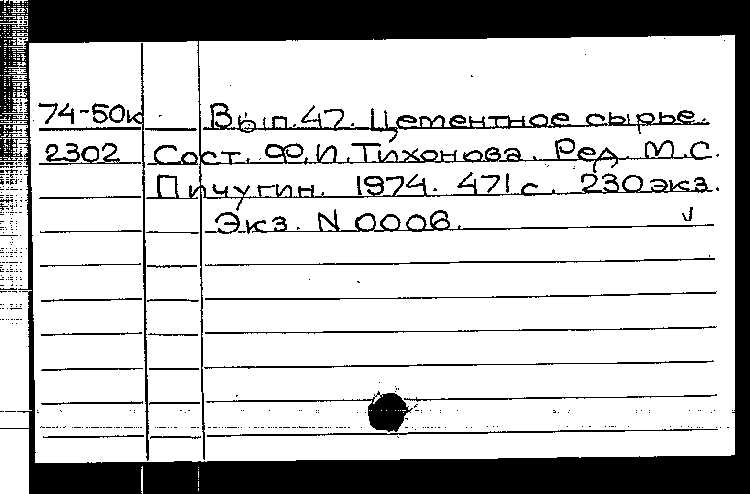 74-50к Вып.47. Цементное сырье.
2302 Сост. Ф.И.Тихонова. Ред. М.С.
Пичугин. 1974. 471с. 230экз.
Экз. N 0006.